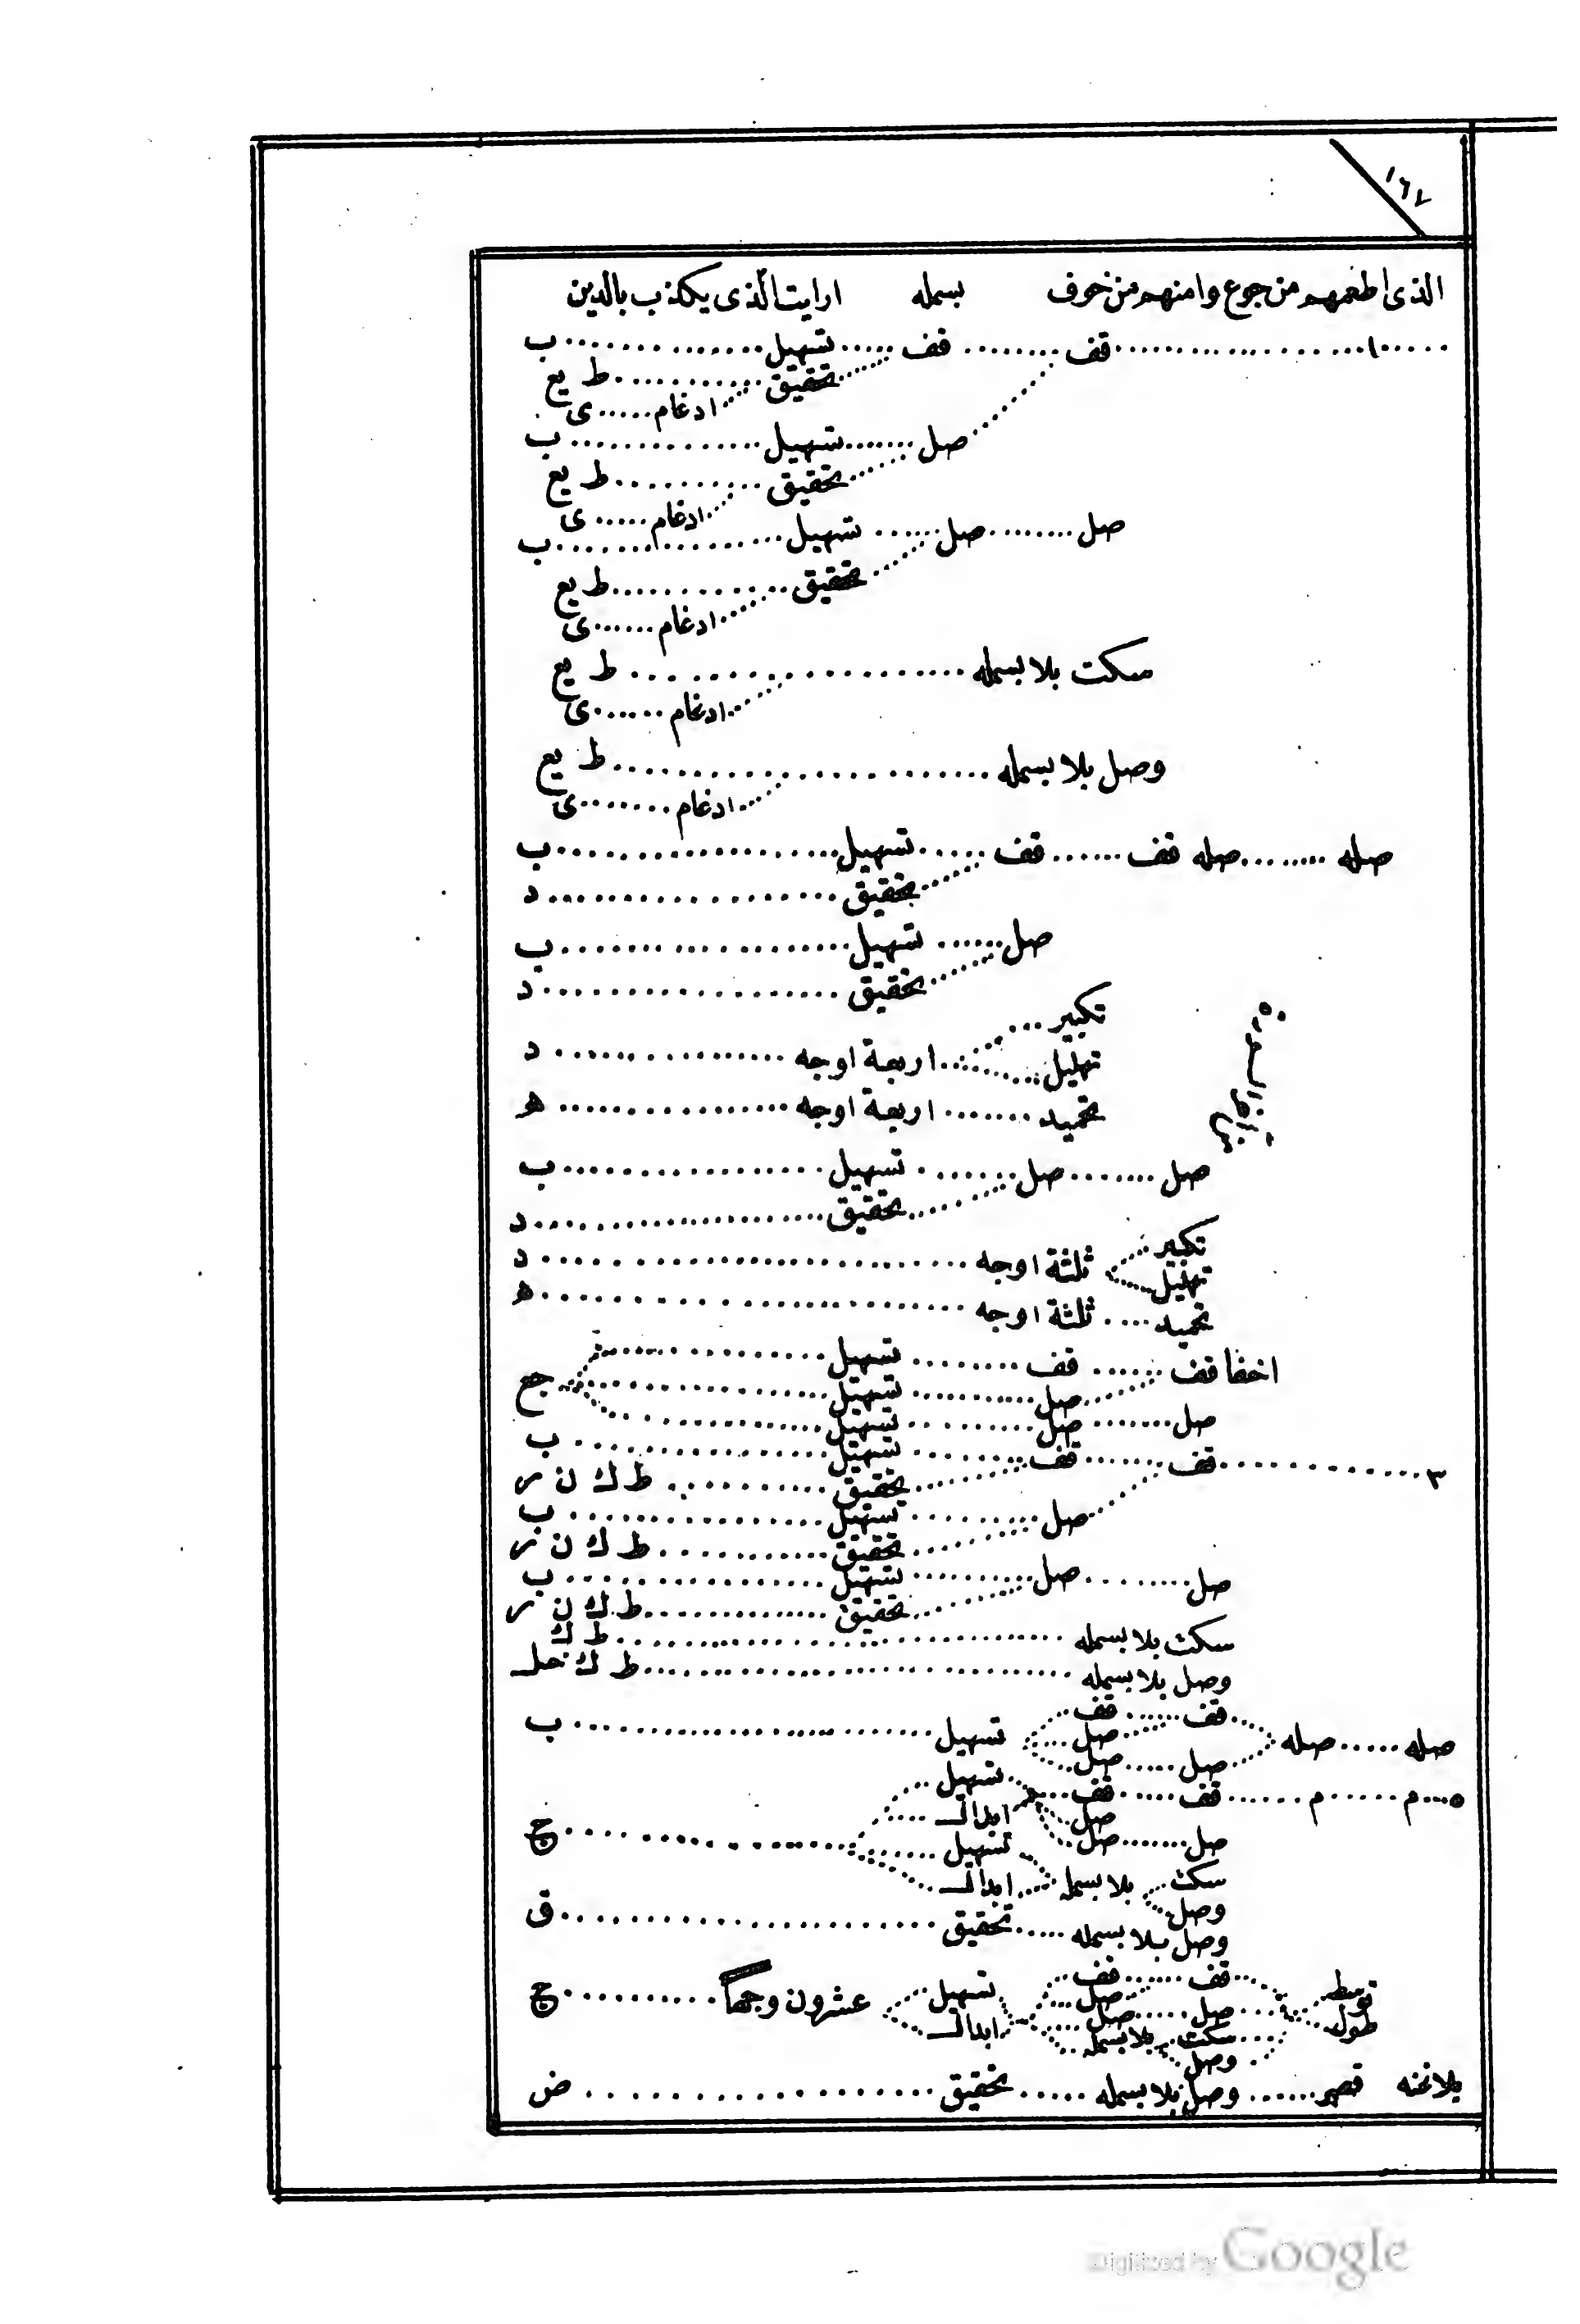 ١٦٧
الذى اطعمهم من جوع وامنهم من خوف بسمله ارايت الذى يكذب بالدين
١ قف قف تسهيل ب
تحقيق ط يع
ادغام ى
صل تسهيل ب
تحقيق ط يع
ادغام ى
صل صل تسهيل ب
تحقيق ط يع
ادغام ى
سكت بلا بسمله ط يع
ادغام ى
وصل بلا بسمله ط يع
ادغام ى
صله صله قف قف تسهيل ب
تحقيق د
صل تسهيل ب
تحقيق د
تكبير
تهليل اربعة اوجه د
تحميد اربعة اوجه ه
صل صل تسهيل ب
تحقيق د
تكبير
تهليل ثلثة اوجه د
تحميد ثلثة اوجه ه
اخفا قف قف تسهيل
صل تسهيل جع
صل صل تسهيل
٣ قف قف تسهيل ب
تحقيق ط ك ن ر
صل تسهيل ب
تحقيق ط ك ن ر
صل صل تسهيل ب
تحقيق ط ك ن ر
سكت بلا بسمله ط ك
وصل بلا بسمله ط ك
صله صله قف قف
صل تسهيل ب
صل صل
٥ م م قف قف تسهيل
صل ابدال
صل صل تسهيل ج
سكت بلا بسمله ابدال
وصل
وصل بلا بسمله تحقيق ق
توسط قف قف تسهيل عشرون وجها ج
صل
طول صل صل ابدال
سكت بلا بسمله
وصل
بلا غنه قصر وصل بلا بسمله تحقيق ض
Digitized by Google